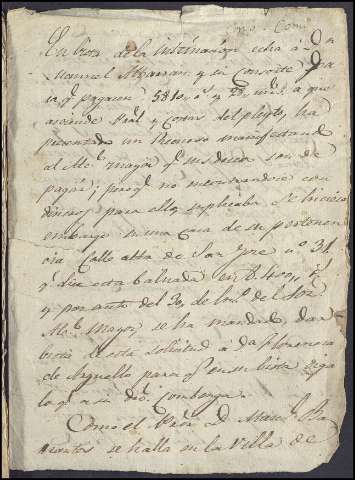 En vista de la insinuacion echa á Dn
Manuel y su Consorte pa
q.e paguen 5810 r.s y 22 mrs á que
asciende Pral y Costas del pleyto, ha
presentado un recurso manifestando
al Ale. mayor q.e sus deseos son de
pagar; pero q.e no encontrandose con
dineros para ello, suplicaba se hiciera
embargo en una casa de su pertenen
cia Calle alta de San Jose n.o 31
q.e dia esta baluada en 8.400 r.s
y por auto del 30, de del Sor
Ale. Mayor, se ha mandado dar
vista de esta solicitud á da Florencia
de Arguello para q.e en su vista diga
lo q.e a su dro. combenga.
Como el Dn Man.l Ba
rientos se halla en la Villa de